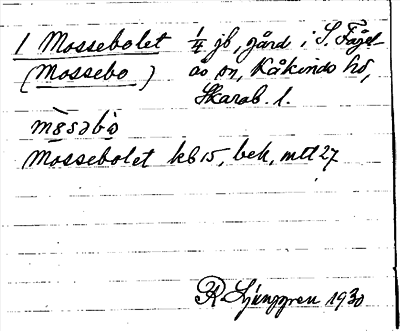 1 Mossebolet 1/4 jb, gård i S. Fågel-
(Mossebo) ås sn, Kåkinds hd,
Skarab. l.
Mossebolet kb 15, bek, mtl 27
R Ljunggren 1930